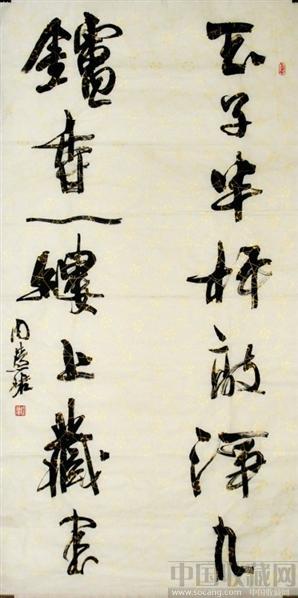 玉子半枰敲淨几
鑪香一縷上藏書
周慧珺
中国收藏网
http://www.socang.com/中国收藏网